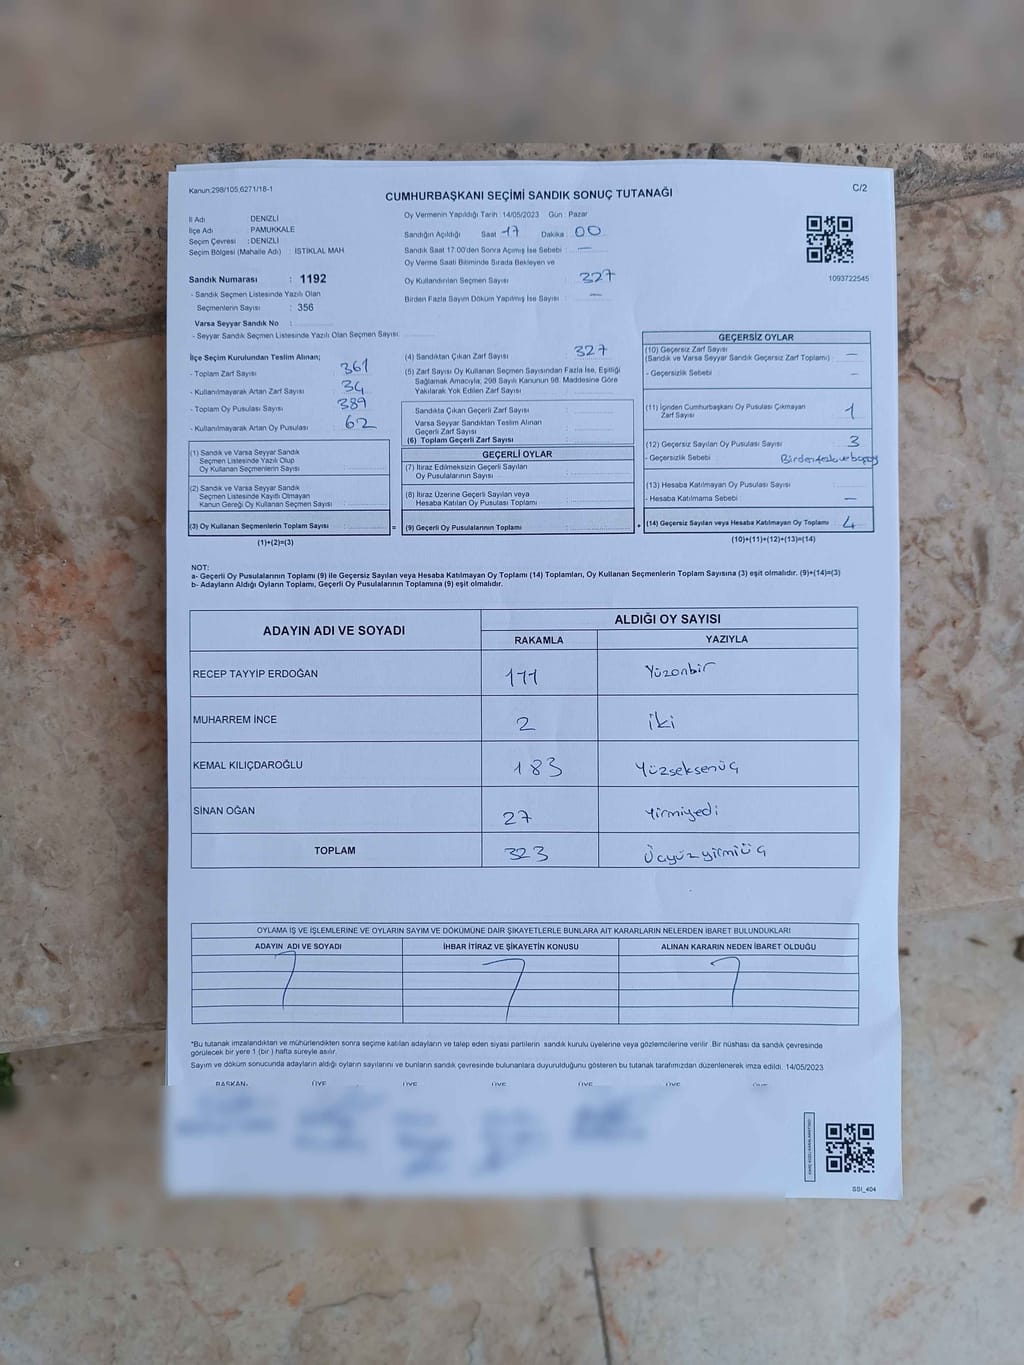 Kanun:298/105,6271/18-1
C/2
CUMHURBAŞKANI SEÇİMİ SANDIK SONUÇ TUTANAĞI
İl Adı : DENİZLİ
İlçe Adı : PAMUKKALE
Seçim Çevresi : DENİZLİ
Seçim Bölgesi (Mahalle Adı) : İSTİKLAL MAH
Oy Vermenin Yapıldığı Tarih : 14/05/2023 Gün : Pazar
Sandığın Açıldığı Saat 17 Dakika : 00
Sandık Saat 17.00'den Sonra Açılmış İse Sebebi : —
Oy Verme Saati Bitiminde Sırada Bekleyen ve
Oy Kullandırılan Seçmen Sayısı : 327
Birden Fazla Sayım Döküm Yapılmış İse Sayısı : —
1093722545
Sandık Numarası : 1192
- Sandık Seçmen Listesinde Yazılı Olan
Seçmenlerin Sayısı : 356
Varsa Seyyar Sandık No :
- Seyyar Sandık Seçmen Listesinde Yazılı Olan Seçmen Sayısı:
İlçe Seçim Kurulundan Teslim Alınan;
- Toplam Zarf Sayısı : 361
- Kullanılmayarak Artan Zarf Sayısı : 34
- Toplam Oy Pusulası Sayısı : 389
- Kullanılmayarak Artan Oy Pusulası : 62
(1) Sandık ve Varsa Seyyar Sandık
Seçmen Listesinde Yazılı Olup
Oy Kullanan Seçmenlerin Sayısı :
(2) Sandık ve Varsa Seyyar Sandık
Seçmen Listesinde Kayıtlı Olmayan
Kanun Gereği Oy Kullanan Seçmen Sayısı :
(3) Oy Kullanan Seçmenlerin Toplam Sayısı :
(1)+(2)=(3)
(4) Sandıktan Çıkan Zarf Sayısı : 327
(5) Zarf Sayısı Oy Kullanan Seçmen Sayısından Fazla İse, Eşitliği
Sağlamak Amacıyla; 298 Sayılı Kanunun 98. Maddesine Göre
Yakılarak Yok Edilen Zarf Sayısı :
Sandıkta Çıkan Geçerli Zarf Sayısı :
Varsa Seyyar Sandıktan Teslim Alınan
Geçerli Zarf Sayısı :
(6) Toplam Geçerli Zarf Sayısı :
GEÇERLİ OYLAR
(7) İtiraz Edilmeksizin Geçerli Sayılan
Oy Pusulalarının Sayısı :
(8) İtiraz Üzerine Geçerli Sayılan veya
Hesaba Katılan Oy Pusulası Toplamı :
= (9) Geçerli Oy Pusulalarının Toplamı : +
GEÇERSİZ OYLAR
(10) Geçersiz Zarf Sayısı
(Sandık ve Varsa Seyyar Sandık Geçersiz Zarf Toplamı) : —
- Geçersizlik Sebebi : —
(11) İçinden Cumhurbaşkanı Oy Pusulası Çıkmayan
Zarf Sayısı : 1
(12) Geçersiz Sayılan Oy Pusulası Sayısı : 3
- Geçersizlik Sebebi :
(13) Hesaba Katılmayan Oy Pusulası Sayısı :
- Hesaba Katılmama Sebebi : —
(14) Geçersiz Sayılan veya Hesaba Katılmayan Oy Toplamı : 4
(10)+(11)+(12)+(13)=(14)
NOT:
a- Geçerli Oy Pusulalarının Toplamı (9) ile Geçersiz Sayılan veya Hesaba Katılmayan Oy Toplamı (14) Toplamları, Oy Kullanan Seçmenlerin Toplam Sayısına (3) eşit olmalıdır. (9)+(14)=(3)
b- Adayların Aldığı Oyların Toplamı, Geçerli Oy Pusulalarının Toplamına (9) eşit olmalıdır.
ADAYIN ADI VE SOYADI
ALDIĞI OY SAYISI
RAKAMLA YAZIYLA
RECEP TAYYİP ERDOĞAN 111 Yüzonbir
MUHARREM İNCE 2 iki
KEMAL KILIÇDAROĞLU 183 Yüzseksenüç
SİNAN OĞAN 27 Yirmiyedi
TOPLAM 323 Üçyüzyirmiüç
OYLAMA İŞ VE İŞLEMLERİNE VE OYLARIN SAYIM VE DÖKÜMÜNE DAİR ŞİKAYETLERLE BUNLARA AİT KARARLARIN NELERDEN İBARET BULUNDUKLARI
ADAYIN ADI VE SOYADI İHBAR İTİRAZ VE ŞİKAYETİN KONUSU ALINAN KARARIN NEDEN İBARET OLDUĞU
*Bu tutanak imzalandıktan ve mühürlendikten sonra seçime katılan adayların ve talep eden siyasi partilerin sandık kurulu üyelerine veya gözlemcilerine verilir .Bir nüshası da sandık çevresinde
görülecek bir yere 1 (bir ) hafta süreyle asılır.
Sayım ve döküm sonucunda adayların aldığı oyların sayılarını ve bunların sandık çevresinde bulunanlara duyurulduğunu gösteren bu tutanak tarafımızdan düzenlenerek imza edildi. 14/05/2023
BAŞKAN, ÜYE ÜYE ÜYE ÜYE ÜYE ÜYE
SSİ_404